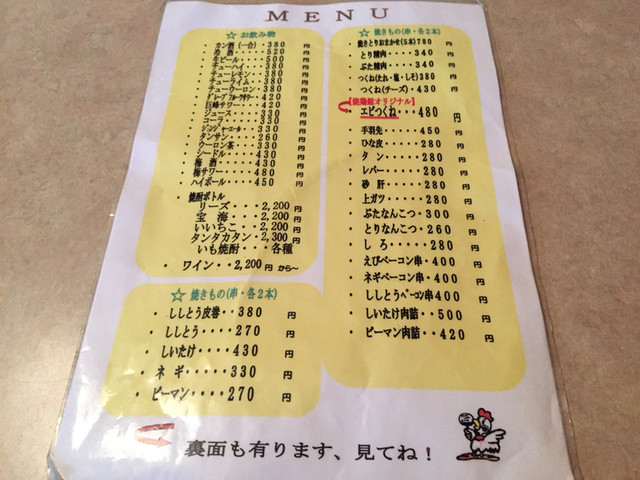 MENU
☆ お飲み物
・カン酒(一合)・380円
・冷酒・・・・520円
・生ビール・・・500円
・チューハイ・・・380円
・チューレモン・・380円
・チューライム・・380円
・チューウーロン・・380円
・420円
・巨峰サワー・・420円
・ジュース・・・330円
・コーラ・・・・330円
・ジンジャーエール・・330円
・タンサン・・・260円
・ウーロン茶・・・330円
・シードル・・・430円
・梅酒・・・・430円
・梅サワー・・・480円
・ハイボール・・・450円
・焼酎ボトル
リーズ・・・2,200円
宝海・・・2,200円
いいちこ・・2,200円
タンタカタン・2,300円
いも焼酎・・・各種
・ワイン・・2,200円から～
☆ 焼きもの(串・各2本)
・ししとう皮巻・・380円
・ししとう・・・・270円
・しいたけ・・・・430円
・ネギ・・・・・330円
・ピーマン・・・・270円
☆ 焼きもの(串・各2本)
・焼きとりおまかせ(5本)780円
・とり精肉・・・・340円
・ぶた精肉・・・・340円
・つくね(たれ・塩・しそ)380円
・つくね(チーズ)・430円
オリジナル】
・エビつくね・・・480円
・手羽先・・・・・450円
・ひな皮・・・・・280円
・タン・・・・・280円
・レバー・・・・・280円
・砂肝・・・・・280円
・上ガツ・・・・・280円
・ぶたなんこつ・・300円
・とりなんこつ・・260円
・しろ・・・・・280円
・えびベーコン串・400円
・ネギベーコン串・400円
・ししとうベーコン串400円
・しいたけ肉詰・・500円
・ピーマン肉詰・・420円
裏面も有ります、見てね！